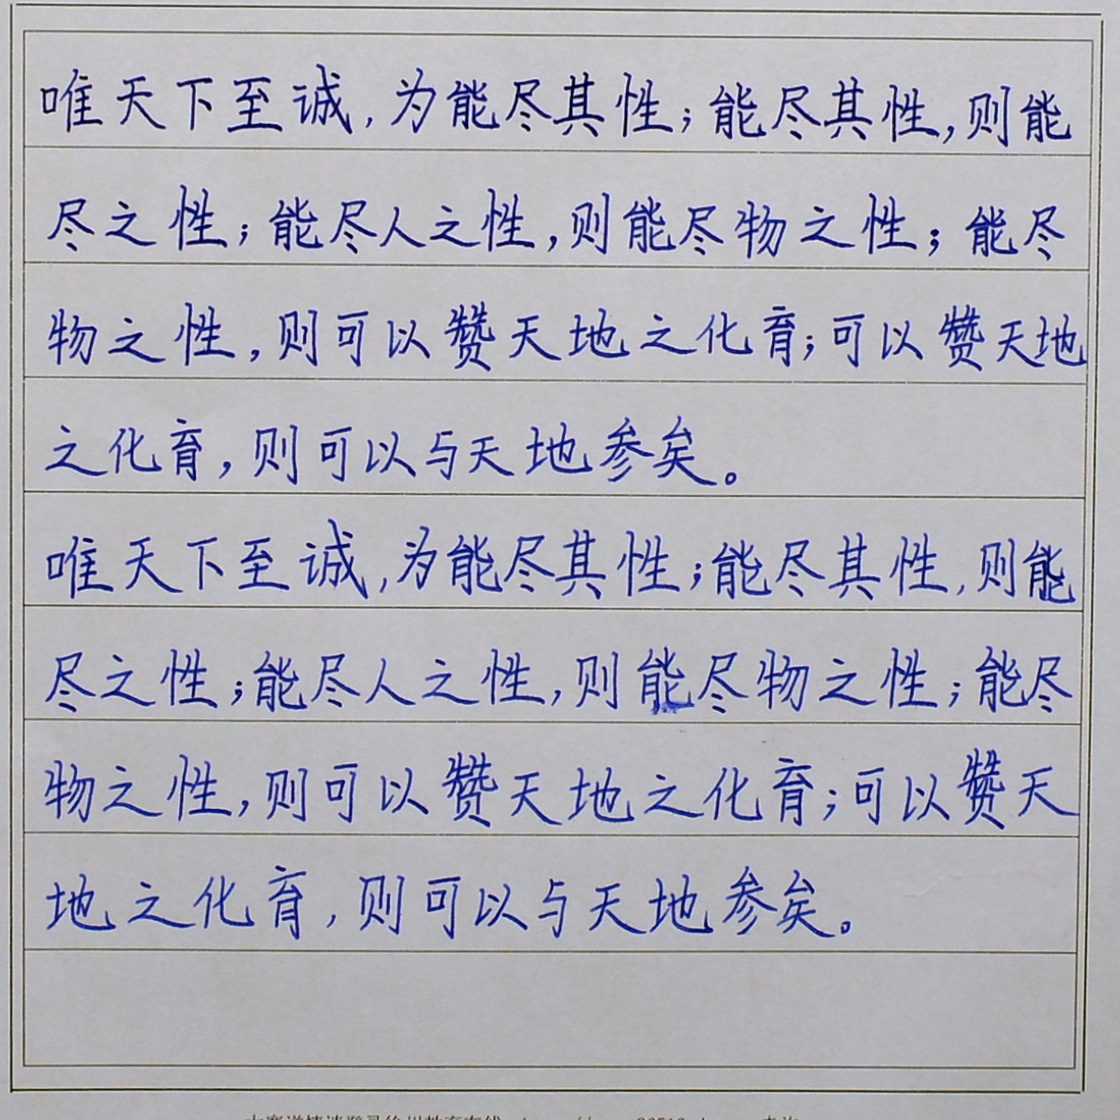 唯天下至诚,为能尽其性;能尽其性,则能
尽之性;能尽人之性,则能尽物之性;能尽
物之性,则可以赞天地之化育;可以赞天地
之化育,则可以与天地参矣。
唯天下至诚,为能尽其性;能尽其性,则能
尽之性;能尽人之性,则能尽物之性;能尽
物之性,则可以赞天地之化育;可以赞天
地之化育,则可以与天地参矣。